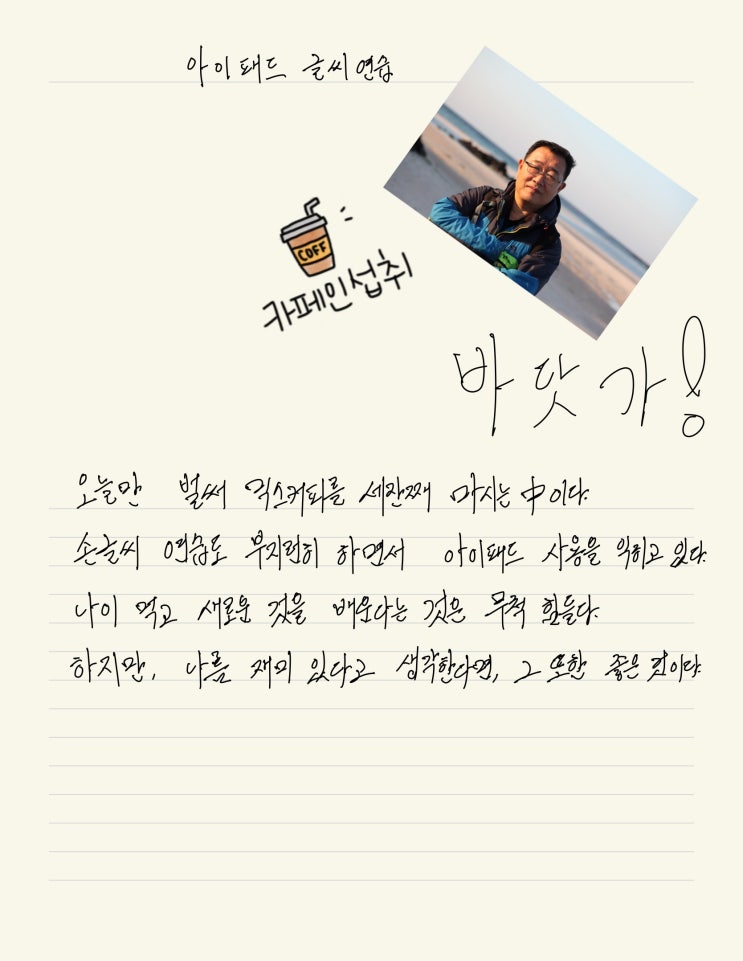 아이패드 글씨연습
COFF
카페인섭취
바닷가!
오늘만 벌써 믹스커피를 세잔째 마시는 中이다.
손글씨 연습도 부지런히 하면서 아이패드 사용을 익히고 있다.
나이 먹고 새로운 것을 배운다는 것은 무척 힘들다.
하지만, 나름 재미 있다고 생각한다면, 그 또한 좋은 일이다.